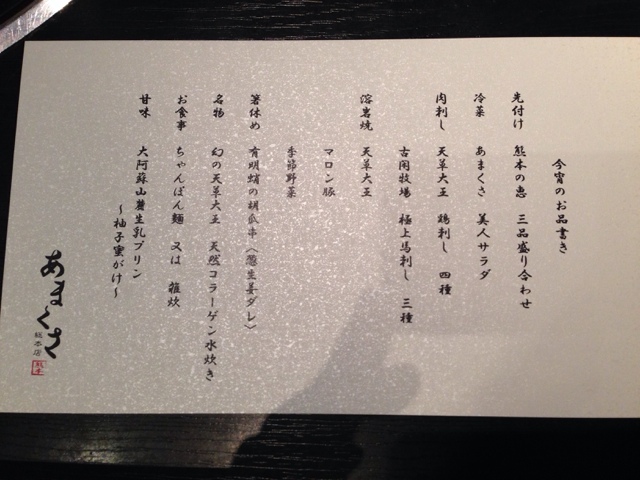 今宵のお品書き
先付け 熊本の恵 三品盛り合わせ
冷菜 あまくさ 美人サラダ
肉刺し 天草大王 鶏刺し 四種
古閑牧場 極上馬刺し 三種
溶岩焼 天草大王
マロン豚
季節野菜
箸休め 有明蛸の胡瓜串〈葱生姜ダレ〉
名物 幻の天草大王 天然コラーゲン水炊き
お食事 ちゃんぽん麺 又は 雑炊
甘味 大阿蘇山麓生乳プリン
〜柚子蜜がけ〜
あまくさ
総本店